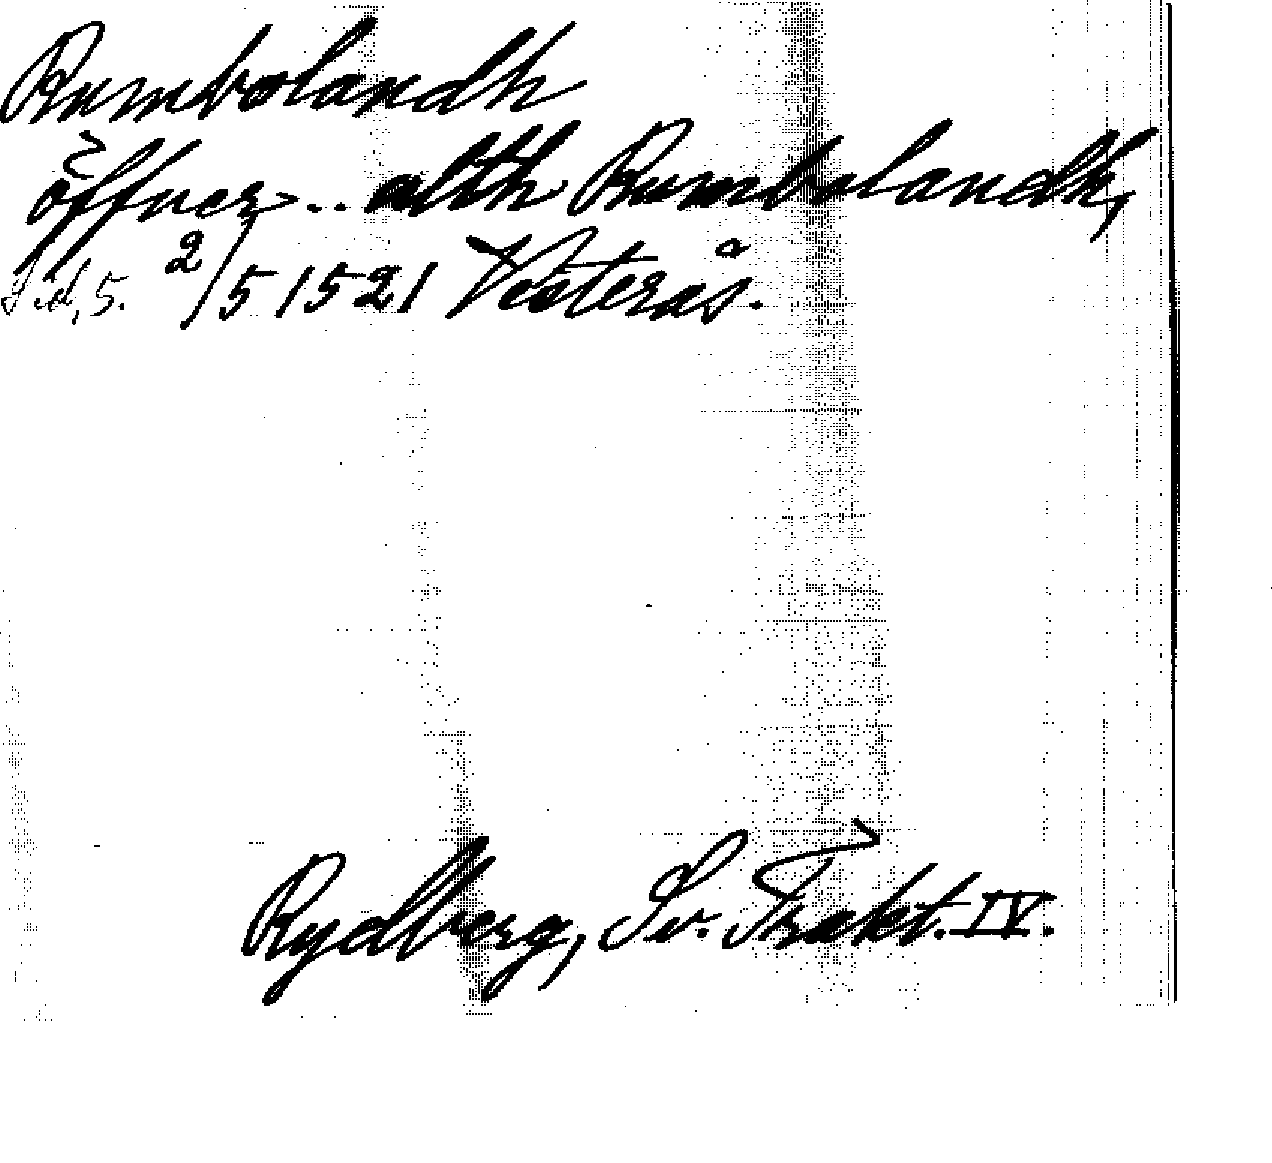 Rumbolandh
öffuer .. alth Rumbolandh,
S. d, 5. 2/5 1521 Västerås.
Rydberg, Sv. Trakt. IV.